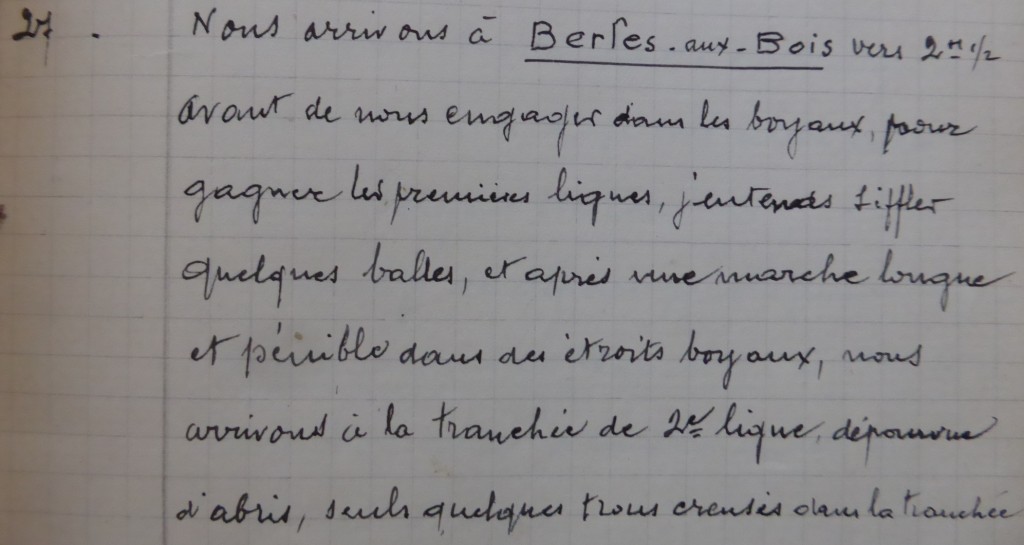 27. Nous arrivons à Berles-aux-Bois vers 2h 1/2
avant de nous engager dans les boyaux, pour
gagner les premières lignes, j'entends siffler
quelques balles, et après une marche longue
et pénible dans des étroits boyaux, nous
arrivons à la tranchée de 2e ligne, dépourvue
d'abris, seuls quelques trous creusés dans la tranchée